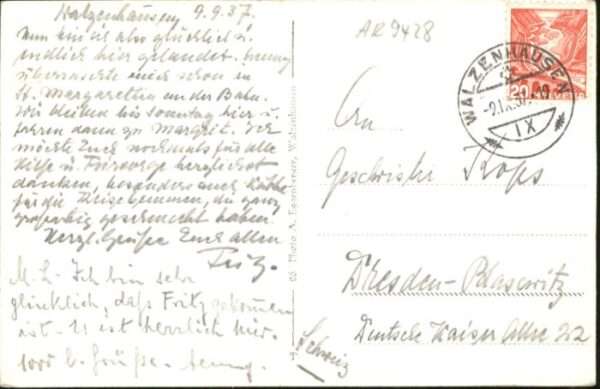 Walzenhausen, 9.9.37.
Nun bin ich also glücklich u.
endlich hier gelandet. Henny
überraschte mich schon in
St. Margrethen an der Bahn.
Wir bleiben bis Sonntag hier u.
fahren dann zu Margrit. Ich
möchte Euch nochmals für alle
Hilfe u. Fürsorge herzlichst
danken, besonders auch Käthe
für die Reise, die ganz
großartig geschmeckt haben.
Herzl. Grüße Euch allen
Fritz.
M. L. Ich bin sehr
glücklich, daß Fritz gekommen
ist. Es ist herrlich hier.
1000 b. Grüße. Henny.
65 Photo A. Eggenberger, Walzenhausen
AR 9428
WALZENHAUSEN
-9.IX.37.
IX
20
An
Geschwister Kops
Dresden-Blasewitz
Deutsche Kaiser Allee 22
Schweiz